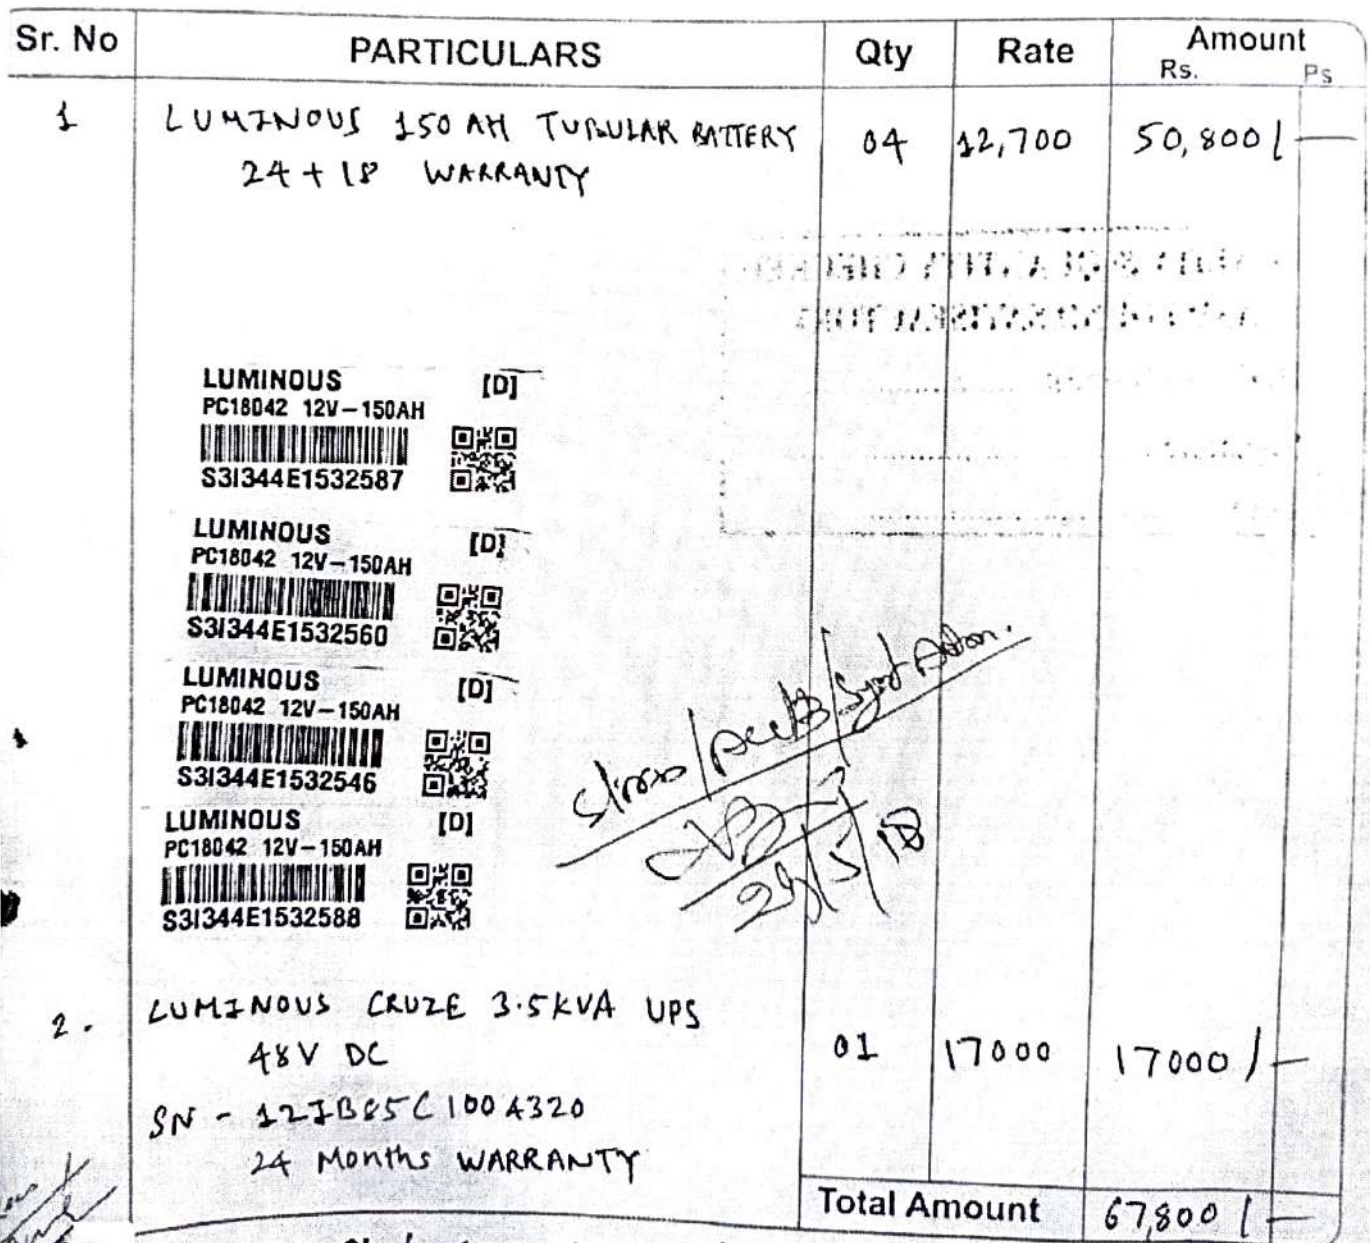 Sr. No PARTICULARS Qty Rate Amount
Rs. Ps
1 LUMINOUS 150 AH TUBULAR BATTERY 04 12,700 50,800/—
24 + 18 WARRANTY
LUMINOUS [D]
PC18042 12V-150AH
S3I344E1532587
LUMINOUS [D]
PC18042 12V-150AH
S3I344E1532560
LUMINOUS [D]
PC18042 12V-150AH
S3I344E1532546
LUMINOUS [D]
PC18042 12V-150AH
S3I344E1532588
2. LUMINOUS CRUZE 3.5KVA UPS
48V DC 01 17000 17000/—
SN - 12IB85C1004320
24 Months WARRANTY
Total Amount 67,800/—